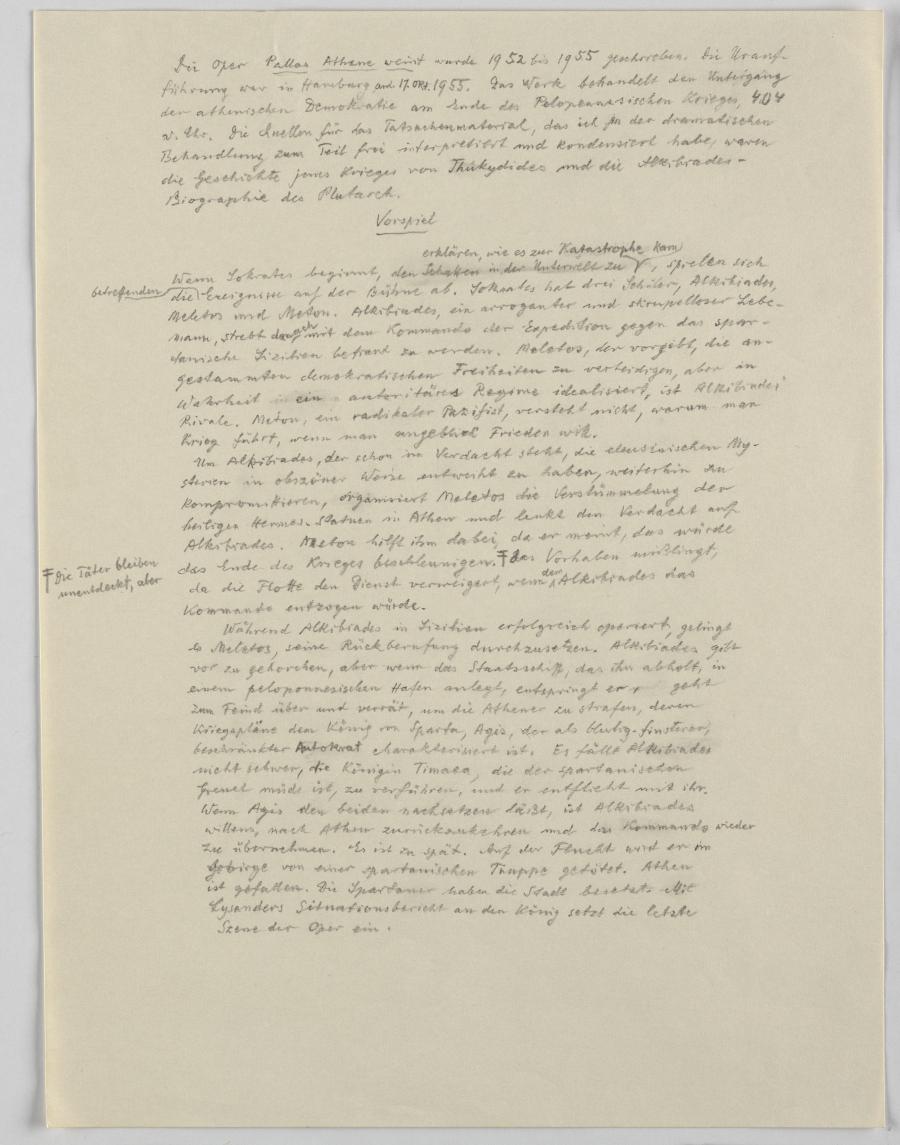 Die Oper Pallas Athene weint wurde 1952 bis 1955 geschrieben. Die Urauf-
führung war in Hamburg am 17. Okt. 1955. Das Werk behandelt den Untergang
der athenischen Demokratie am Ende des Peloponnesischen Krieges, 404
v. Chr. Die Quellen für das Tatsachenmaterial, das ich in der dramatischen
Behandlung zum Teil frei interpretiert und kondensiert habe, waren
die Geschichte jenes Krieges von Thukydides und die Alkibiades-
Biographie des Plutarch.
Vorspiel
erklären, wie es zur Katastrophe kam
Wenn Sokrates beginnt, den Schatten in der Unterwelt zu , spielen sich
betreffenden
die Ereignisse auf der Bühne ab. Sokrates hat drei Schüler, Alkibiades,
Meletos und Meton. Alkibiades, ein arroganter und skrupelloser Lebe-
mann, strebt danach mit dem Kommando der Expedition gegen das spar-
tanische Sizilien betraut zu werden. Meletos, der vorgibt, die an-
gestammten demokratischen Freiheiten zu verteidigen, aber in
Wahrheit ein autoritäres Regime idealisiert, ist Alkibiades'
Rivale. Meton, ein radikaler Pazifist, versteht nicht, warum man
Krieg führt, wenn man angeblich Frieden will.
Um Alkibiades, der schon im Verdacht steht, die eleusinischen My-
sterien in obszöner Weise entweiht zu haben, weiterhin zu
kompromittieren, organisiert Meletos die Verstümmelung der
heiligen Hermes-Statuen in Athen und lenkt den Verdacht auf
Alkibiades. Meton hilft ihm dabei, da er meint, das würde
das Ende des Krieges beschleunigen. Das Vorhaben mißlingt,
Die Täter bleiben
unentdeckt, aber
da die Flotte den Dienst verweigert, wenn dem Alkibiades das
Kommando entzogen würde.
Während Alkibiades in Sizilien erfolgreich operiert, gelingt
es Meletos, seine Rückberufung durchzusetzen. Alkibiades gibt
vor zu gehorchen, aber wenn das Staatsschiff, das ihn abholt, in
einem peloponnesischen Hafen anlegt, entspringt er, geht
zum Feind über und verrät, um die Athener zu strafen, deren
Kriegspläne dem König von Sparta, Agis, der als blutig-finsterer,
beschränkter Autokrat charakterisiert ist. Es fällt Alkibiades
nicht schwer, die Königin Timaea, die der spartanischen
Greuel müde ist, zu verführen, und er entflieht mit ihr.
Wenn Agis den beiden nachsetzen läßt, ist Alkibiades
willens, nach Athen zurückzukehren und das Kommando wieder
zu übernehmen. Es ist zu spät. Auf der Flucht wird er im
Gebirge von einer spartanischen Truppe getötet. Athen
ist gefallen. Die Spartaner haben die Stadt besetzt. Mit
Lysanders Situationsbericht an den König setzt die letzte
Szene der Oper ein.